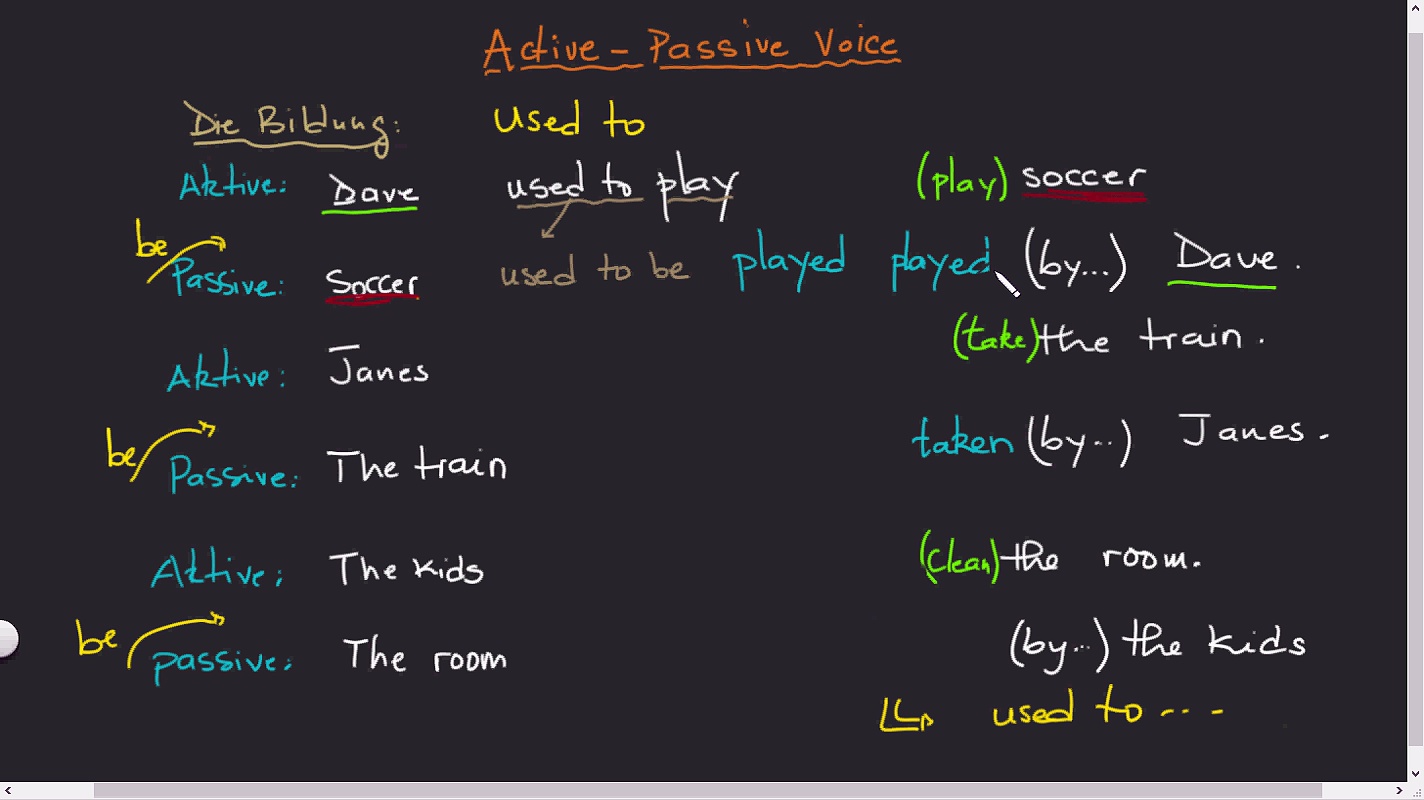 Active - Passive Voice
Die Bildung: used to
Aktive: Dave used to play (play) soccer
be
Passive: Soccer used to be played played (by...) Dave.
Aktive: Janes (take) the train.
be
Passive: The train taken (by...) Janes.
Aktive: The kids (clean) the room.
be
passive: The room (by...) the kids
used to ...